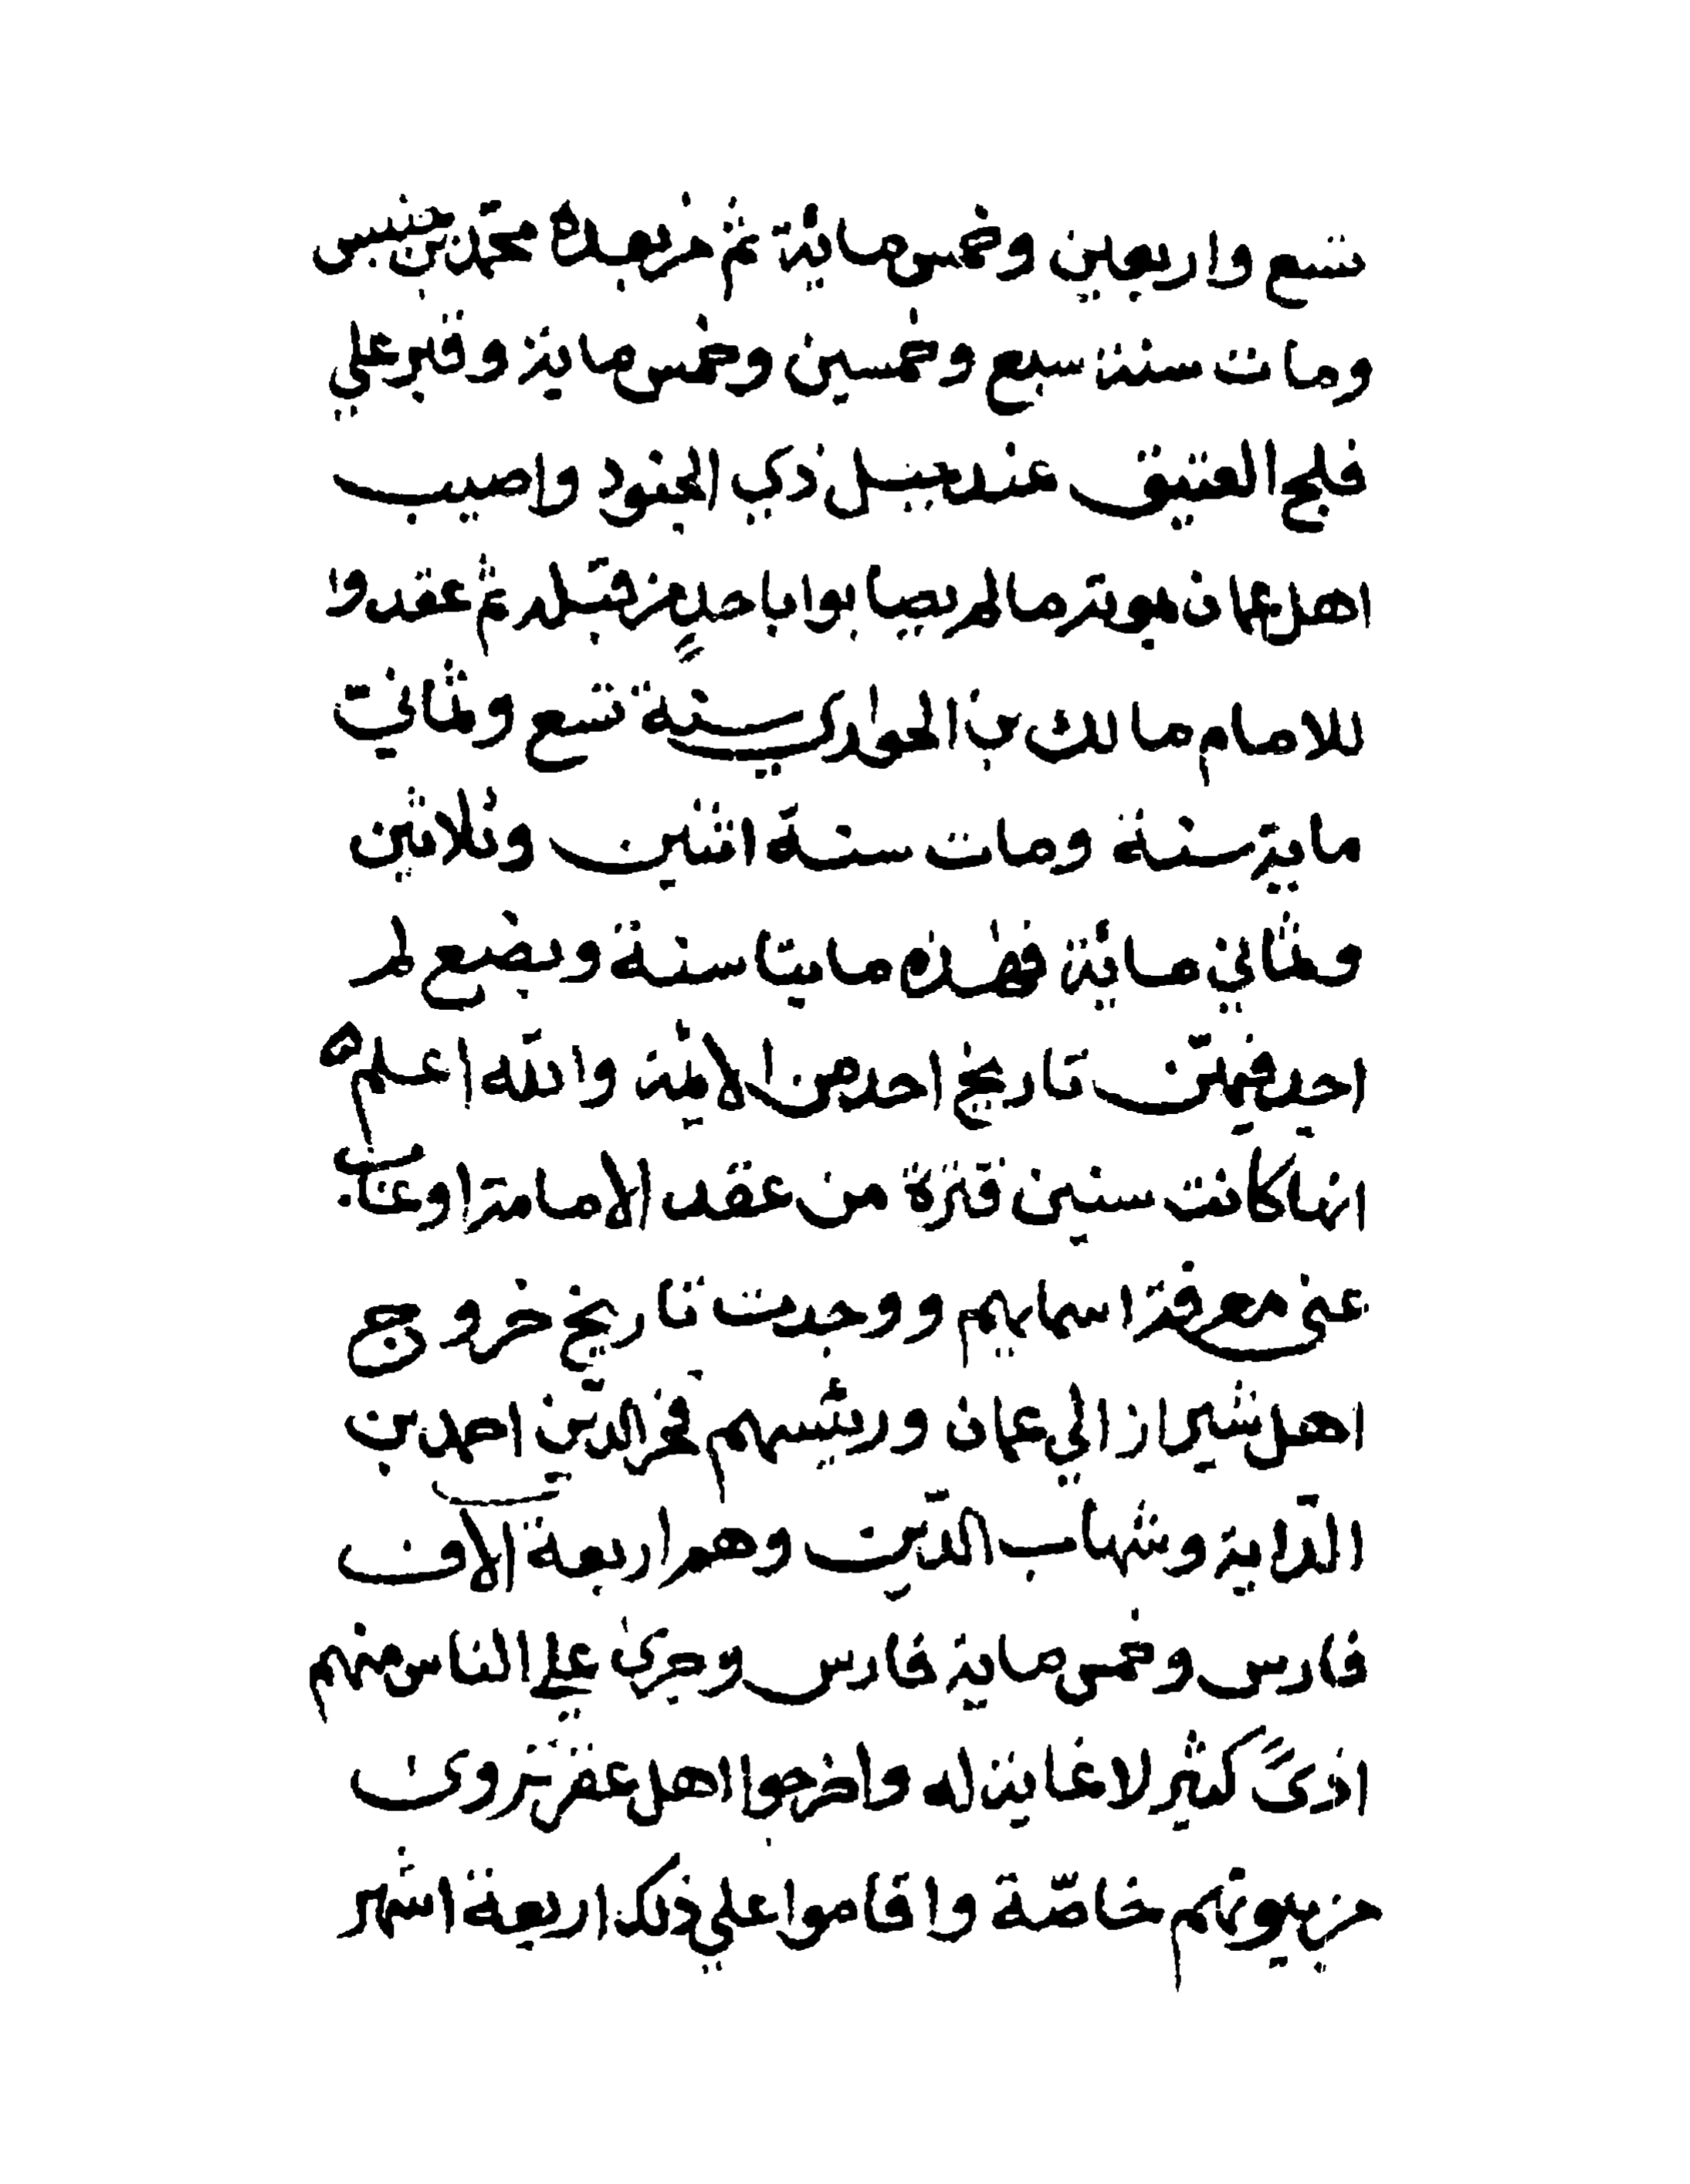 تسع واربعين وخمس مائة ثم من بعده محمد بن خنبش
ومات سنة سبع وخمسين وخمس ماية وقبر علي
فلج العتيق عند جبل ذي الجنود واصيب
اهل عمان بموته ما لم يصابوا باحدٍ من قبله ثم عقدوا
للامام مالك بن الحواري سنة تسع وثماني
ماية سنة ومات سنة اثنين وثلاثين
وثماني مائة فهذه مايتا سنة وبضع لم
احد فيهن تاريخ احد من الايمة والله اعلم
انها كانت سنين فترة من عقد الامامة او غاب
عني معرفة اسمايهم ووجدت تاريخ خروج
اهل شيراز الي عمان ورئيسهم فخر الدين احمد بن
الداية وشهاب الدين وهم اربعة الاف
فارس وخمس ماية فارس وجرى علي الناس منهم
اذىً كثير لا غاية له واخرجوا اهل عقر نزوى
من بيوتهم خاصّة واقاموا علي ذلك اربعة اشهر